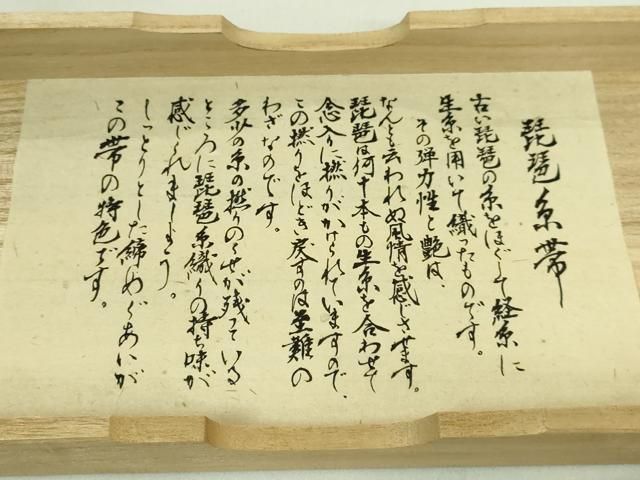 琵琶糸帯
古い琵琶の糸をほぐして経糸に
生糸を用いて織ったものです。
その弾力性と艶は、
なんとも云われぬ風情を感じさせます。
琵琶は何十本もの生糸を合わせて
念入りに撚りがかけられていますので、
この撚りをほどき戻すのは至難の
わざなのです。
多少の糸の撚りのくせが残っている
ところに琵琶糸織りの持ち味が
感じられましょう。
しっとりとした締めぐあいが
この帯の特色です。